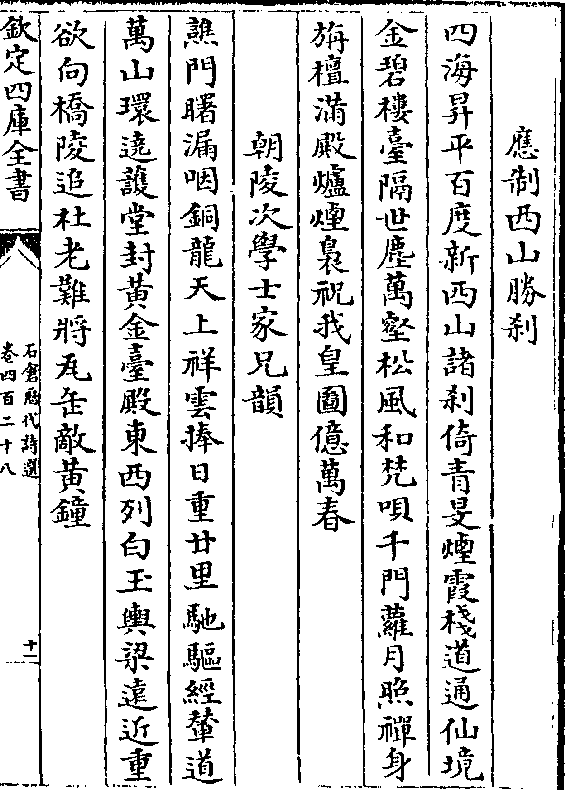 應制西山勝刹
四海昇平百度新西山諸刹倚青旻煙霞棧道通仙境
金碧樓臺隔世塵萬壑松風和梵唄千門蘿月照禪身
旃檀滿殿爐煙裊祝我皇圖億萬春
朝陵次學士家兄韻
譙門曙漏咽銅龍天上祥雲捧日重廿里馳驅經輦道
萬山環遶護堂封黃金臺殿東西列白玉輿梁遠近重
欲向橋陵追杜老難將瓦缶敵黃鐘
欽定四庫全書
石倉歷代詩選
卷四百二十八
十一